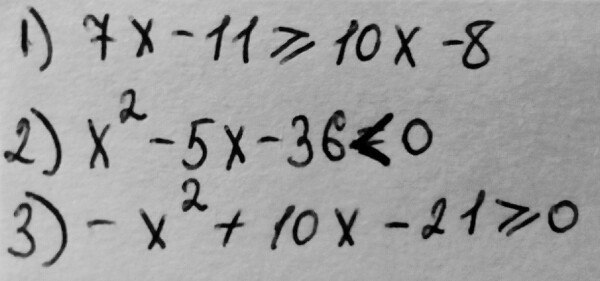 1) 7x - 11 ⩾ 10x - 8
2) x² - 5x - 36 < 0
3) - x² + 10x - 21 ⩾ 0